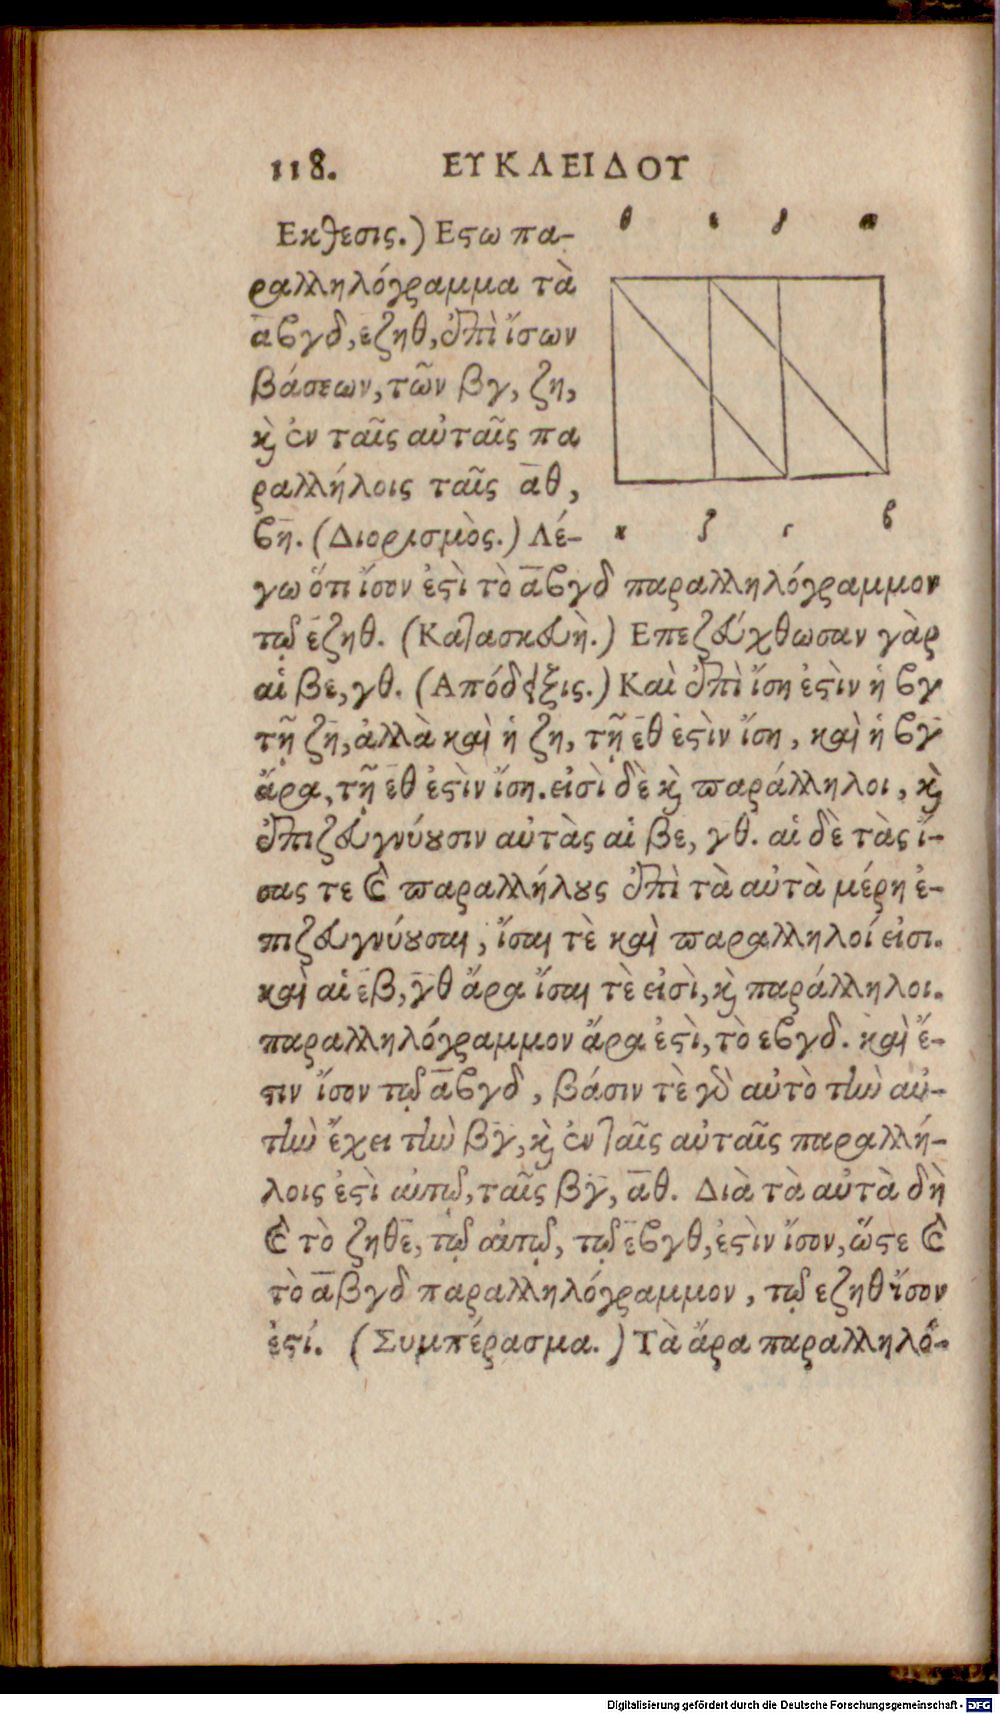 118. ΕΥΚΛΕΙΔΟΥ
Εκθεσις.) Εςω πα-
ραλληλόγραμμα τὰ
α̅βγδ, εζηθ, ἐπὶ ἴσων
βάσεων, τῶν βγ, ζη,
κὶ ἐν ταῖς αὐταῖς πα
ραλλήλοις ταῖς α̅θ,
βη. (Διορισμὸς.) Λέ-
θ ε δ α
η ζ γ β
γω ὅτι ἴσον ἐςὶ τὸ α̅βγδ παραλληλόγραμμον
τῷ εζηθ. (Κατασκευὴ.) Επεζεύχθωσαν γὰρ
αἱ βε, γθ. (Απόδειξις.) Καὶ ἐπὶ ἴση ἐςὶν ἡ βγ
τῇ ζη, ἀλλὰ καὶ ἡ ζη, τῇ εθ ἐςὶν ἴση, καὶ ἡ βγ
ἄρα, τῇ εθ ἐςὶν ἴση. εἰσὶ δὲ κὶ παράλληλοι, κὶ
ἐπιζευγνύουσιν αὐτὰς αἱ βε, γθ. αἱ δὲ τὰς ἴ-
σας τε καὶ παραλλήλους ἐπὶ τὰ αὐτὰ μέρη ἐ-
πιζευγνύουσαι, ἴσαι τὲ καὶ παραλληλοί εἰσι.
καὶ αἱ εβ, γθ ἄρα ἴσαι τὲ εἰσὶ, κὶ παράλληλοι.
παραλληλόγραμμον ἄρα ἐςὶ, τὸ εβγδ. καὶ ἔ-
ςιν ἴσον τῷ α̅βγδ, βάσιν τὲ γὰρ αὐτὸ τὴν αὐ-
τὴν ἔχει τὴν βγ, κὶ ἐν ταῖς αὐταῖς παραλλή-
λοις ἐςὶ αὐτῷ, ταῖς βγ, α̅θ. Διὰ τὰ αὐτὰ δὴ
καὶ τὸ ζηθε, τῷ αὐτῷ, τῷ εβγθ, ἐςὶν ἴσον, ὥςε καὶ
τὸ α̅βγδ παραλληλόγραμμον, τῷ εζηθ ἴσον
ἐςί. (Συμπέρασμα.) Τὰ ἄρα παραλληλό-
Digitalisierung gefördert durch die Deutsche Forschungsgemeinschaft - DFG